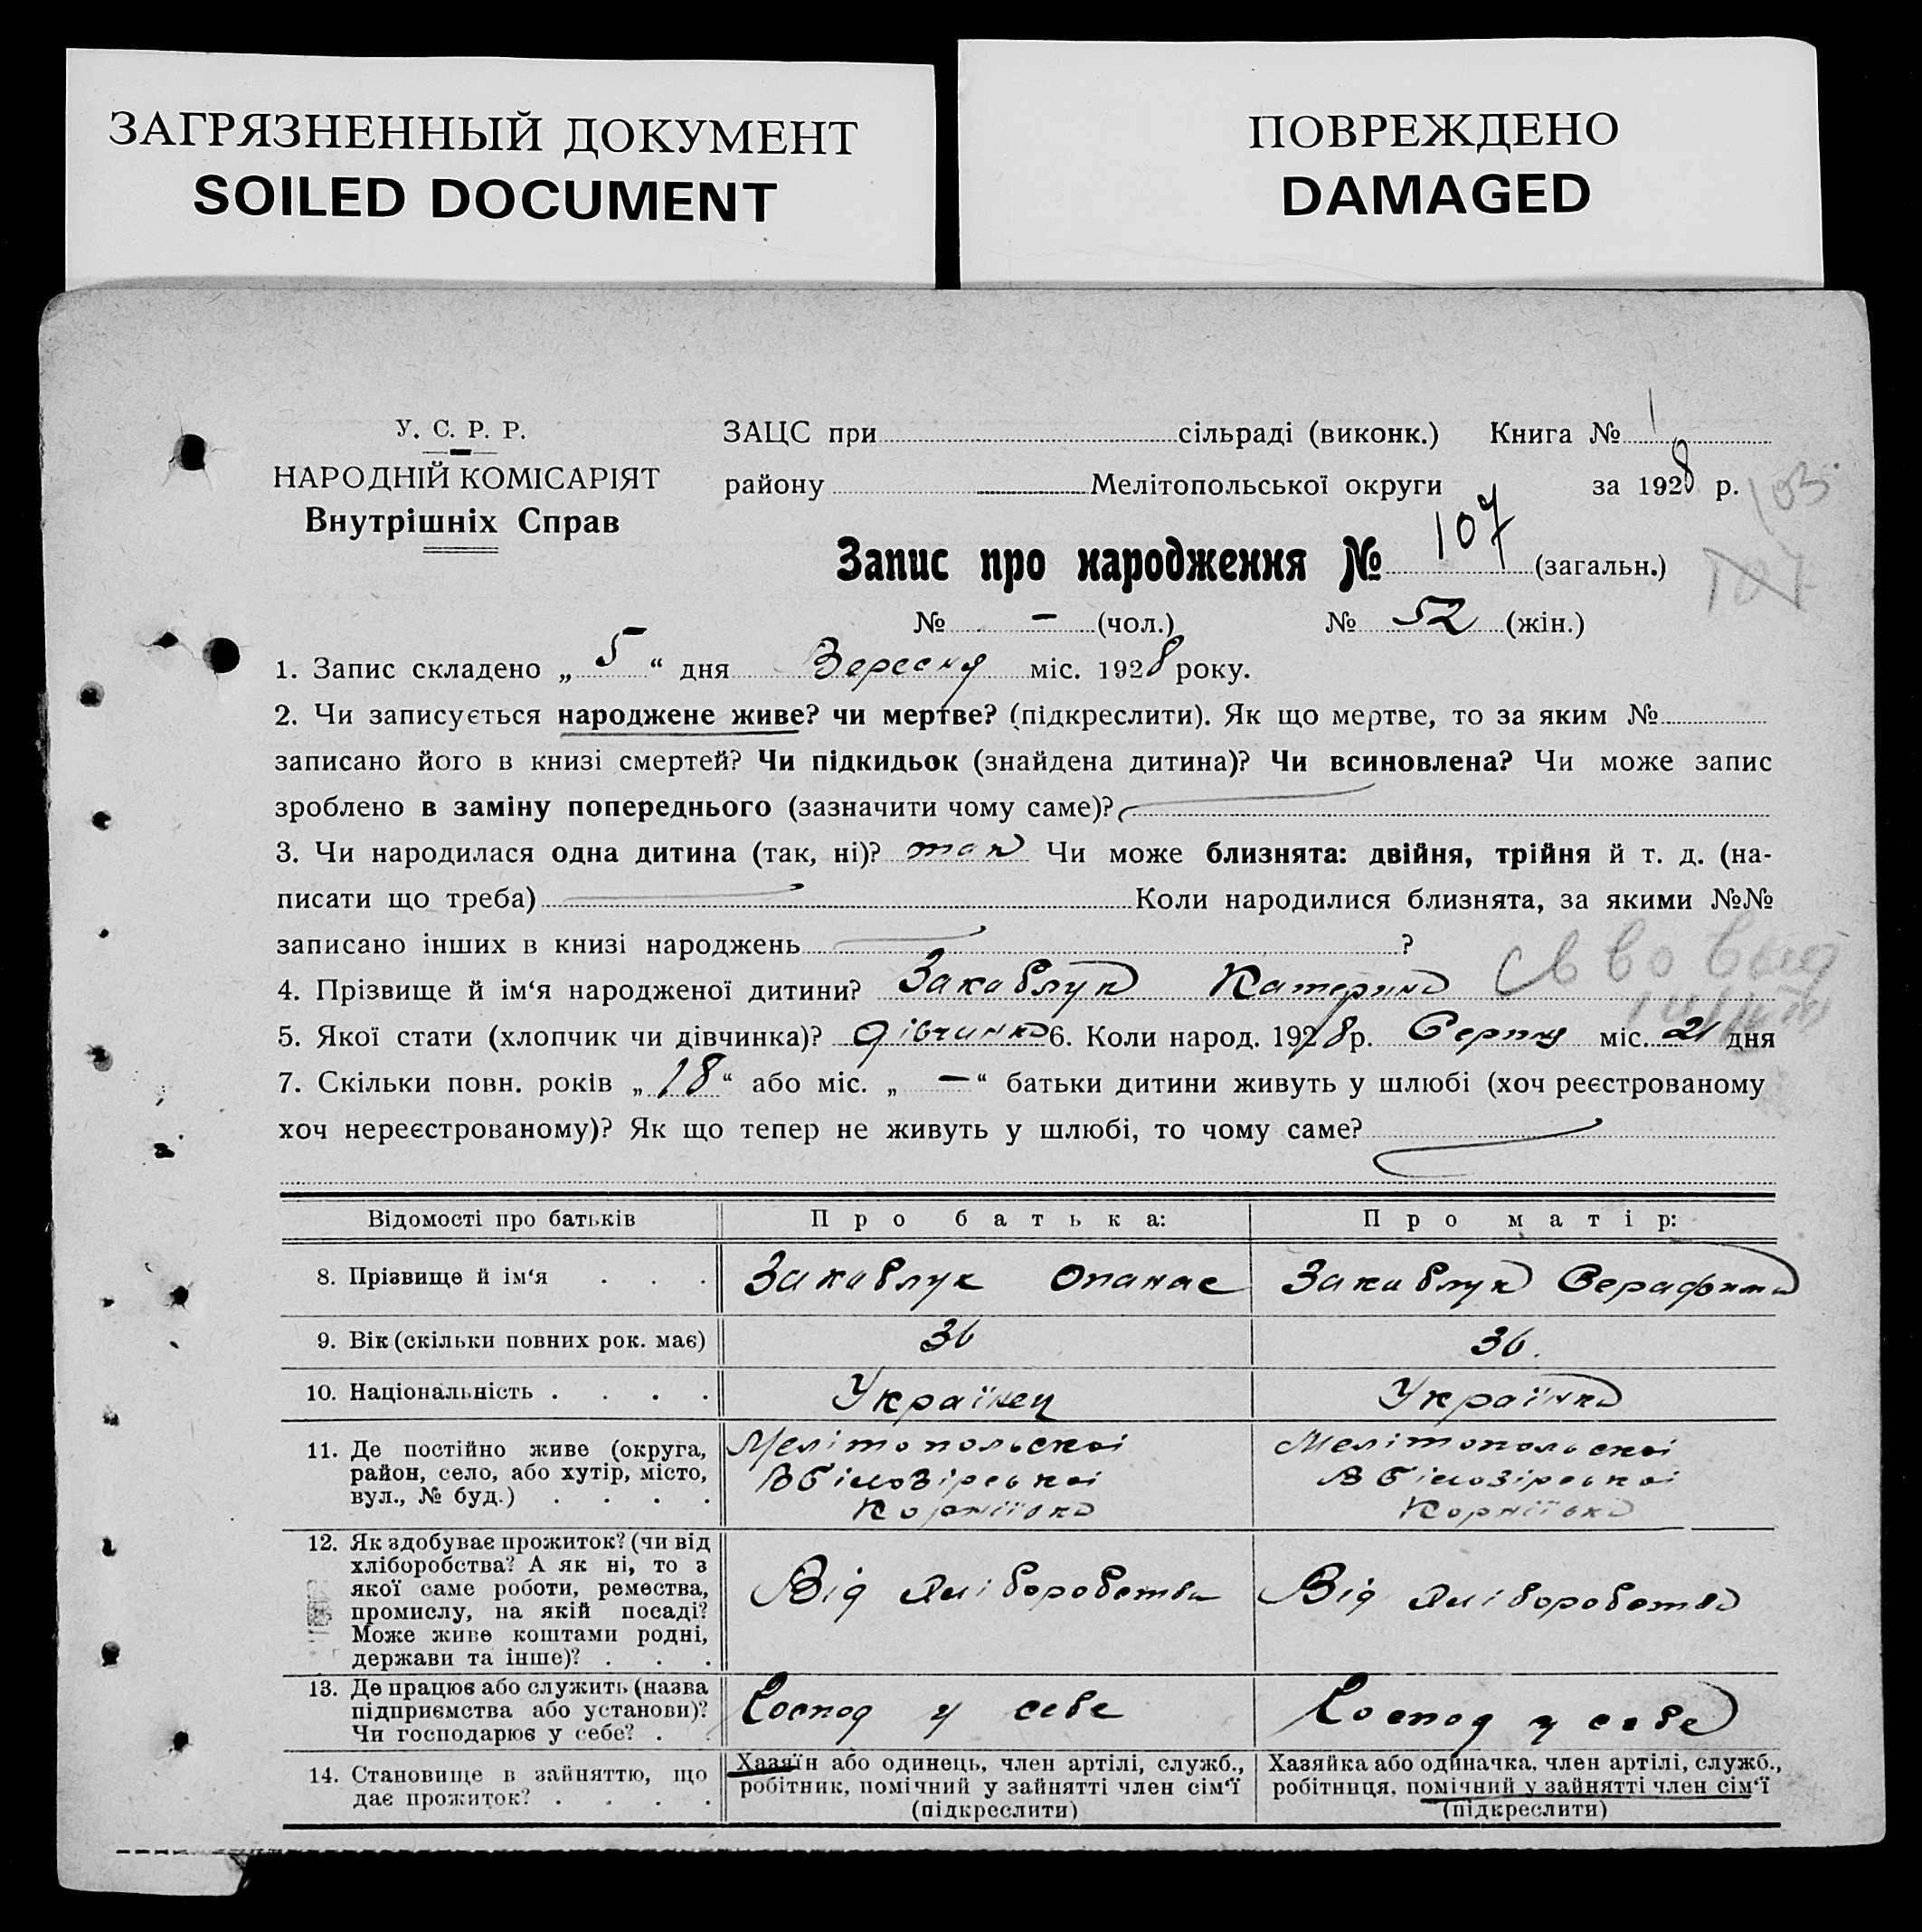 ЗАГРЯЗНЕННЫЙ ДОКУМЕНТ
SOILED DOCUMENT
ПОВРЕЖДЕНО
DAMAGED
У. С. Р. Р.
НАРОДНІЙ КОМІСАРІЯТ
Внутрішніх Справ
ЗАЦС при сільраді (виконк.) Книга № 1
району Мелітопольської округи за 1928 р.
103
Запис про народження № 107 (загальн.)
107
№ – (чол.) № 52 (жін.)
1. Запис складено „ 5 “ дня Вересня міс. 1928 року.
2. Чи записується народжене живе? чи мертве? (підкреслити). Як що мертве, то за яким №
записано його в книзі смертей? Чи підкидьок (знайдена дитина)? Чи всиновлена? Чи може запис
зроблено в заміну попереднього (зазначити чому саме)?
3. Чи народилася одна дитина (так, ні)? так Чи може близнята: двійня, трійня й т. д. (на-
писати що треба) Коли народилися близнята, за якими №№
записано інших в книзі народжень ?
4. Прізвище й ім‘я народженої дитини? Закаблук Катерина
5. Якої стати (хлопчик чи дівчинка)? дівчинка 6. Коли народ. 1928 р. Серпня міс. 21 дня
7. Скільки повн. років „ 18 “ або міс. „ – “ батьки дитини живуть у шлюбі (хоч реєстрованому
хоч нереєстрованому)? Як що тепер не живуть у шлюбі, то чому саме?
Відомості про батьків Про батька: Про матір:
8. Прізвище й ім‘я . . . Закаблук Опанас Закаблук Серафима
9. Вік (скільки повних рок. має) 36 36.
10. Національність . . . . Українец Українка
11. Де постійно живе (округа,
район, село, або хутір, місто,
вул., № буд.) . . . .
Мелітопольскоі
Корніївка
Мелітопольскоі
Корніївка
12. Як здобуває прожиток? (чи від
хліборобства? А як ні, то з
якої саме роботи, ремества,
промислу, на якій посаді?
Може живе коштами родні,
держави та інше)? . . .
Від хліборобства
Від хліборобства
13. Де працює або служить (назва
підприємства або установи)?
Чи господарює у себе? . .
Господ у себе
Господ у себе
14. Становище в зайняттю, що
дає прожиток? . . . .
Хазяїн або одинець, член артілі, служб.,
робітник, помічний у зайнятті член сім‘ї
(підкреслити)
Хазяйка або одиначка, член артілі, служб.,
робітниця, помічний у зайнятті член сім‘ї
(підкреслити)